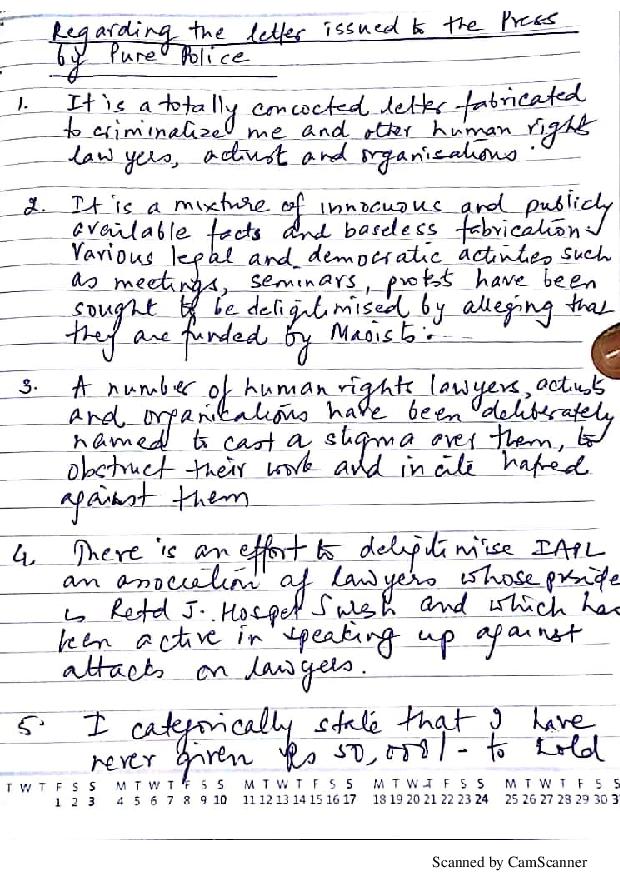 Regarding the letter issued to the Press
by Pune Police
1. It is a totally concocted letter fabricated
to criminalize me and other human right
lawyers, activist and organisations.
2. It is a mixture of innocuous and publicly
available facts and baseless fabrication.
Various legal and democratic activities such
as meetings, seminars, protests have been
sought to be deligitimised by alleging that
they are funded by Maoists.
3. A number of human rights lawyers, activists
and organisations have been deliberately
named to cast a stigma over them, to
obstruct their work and incite hatred
against them
4. There is an effort to deligitimise IAPL
an association of lawyers whose preside
is Retd J. Hospet Suresh and which has
been active in speaking up against
attacks on lawyers.
5. I categorically state that I have
never given Rs 50,000/- to
T W T F S S M T W T F S S M T W T F S S M T W T F S S M T W T F S S
1 2 3 4 5 6 7 8 9 10 11 12 13 14 15 16 17 18 19 20 21 22 23 24 25 26 27 28 29 30 3
Scanned by CamScanner